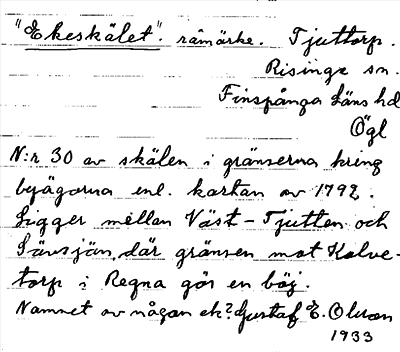 "Ekeskälet". råmärke. Tjuttorp.
Risinge sn.
Finspånga läns hd
Ögl
N:r 30 av skälen i gränserna kring
byägorna enl. kartan av 1792.
Ligger mellan Väst-Tjutten och
Länsjän, där gränsen mot Kalve-
torp i Regna gör en böj.
Namnet av någon ek? Gustaf E. Olsson
1933